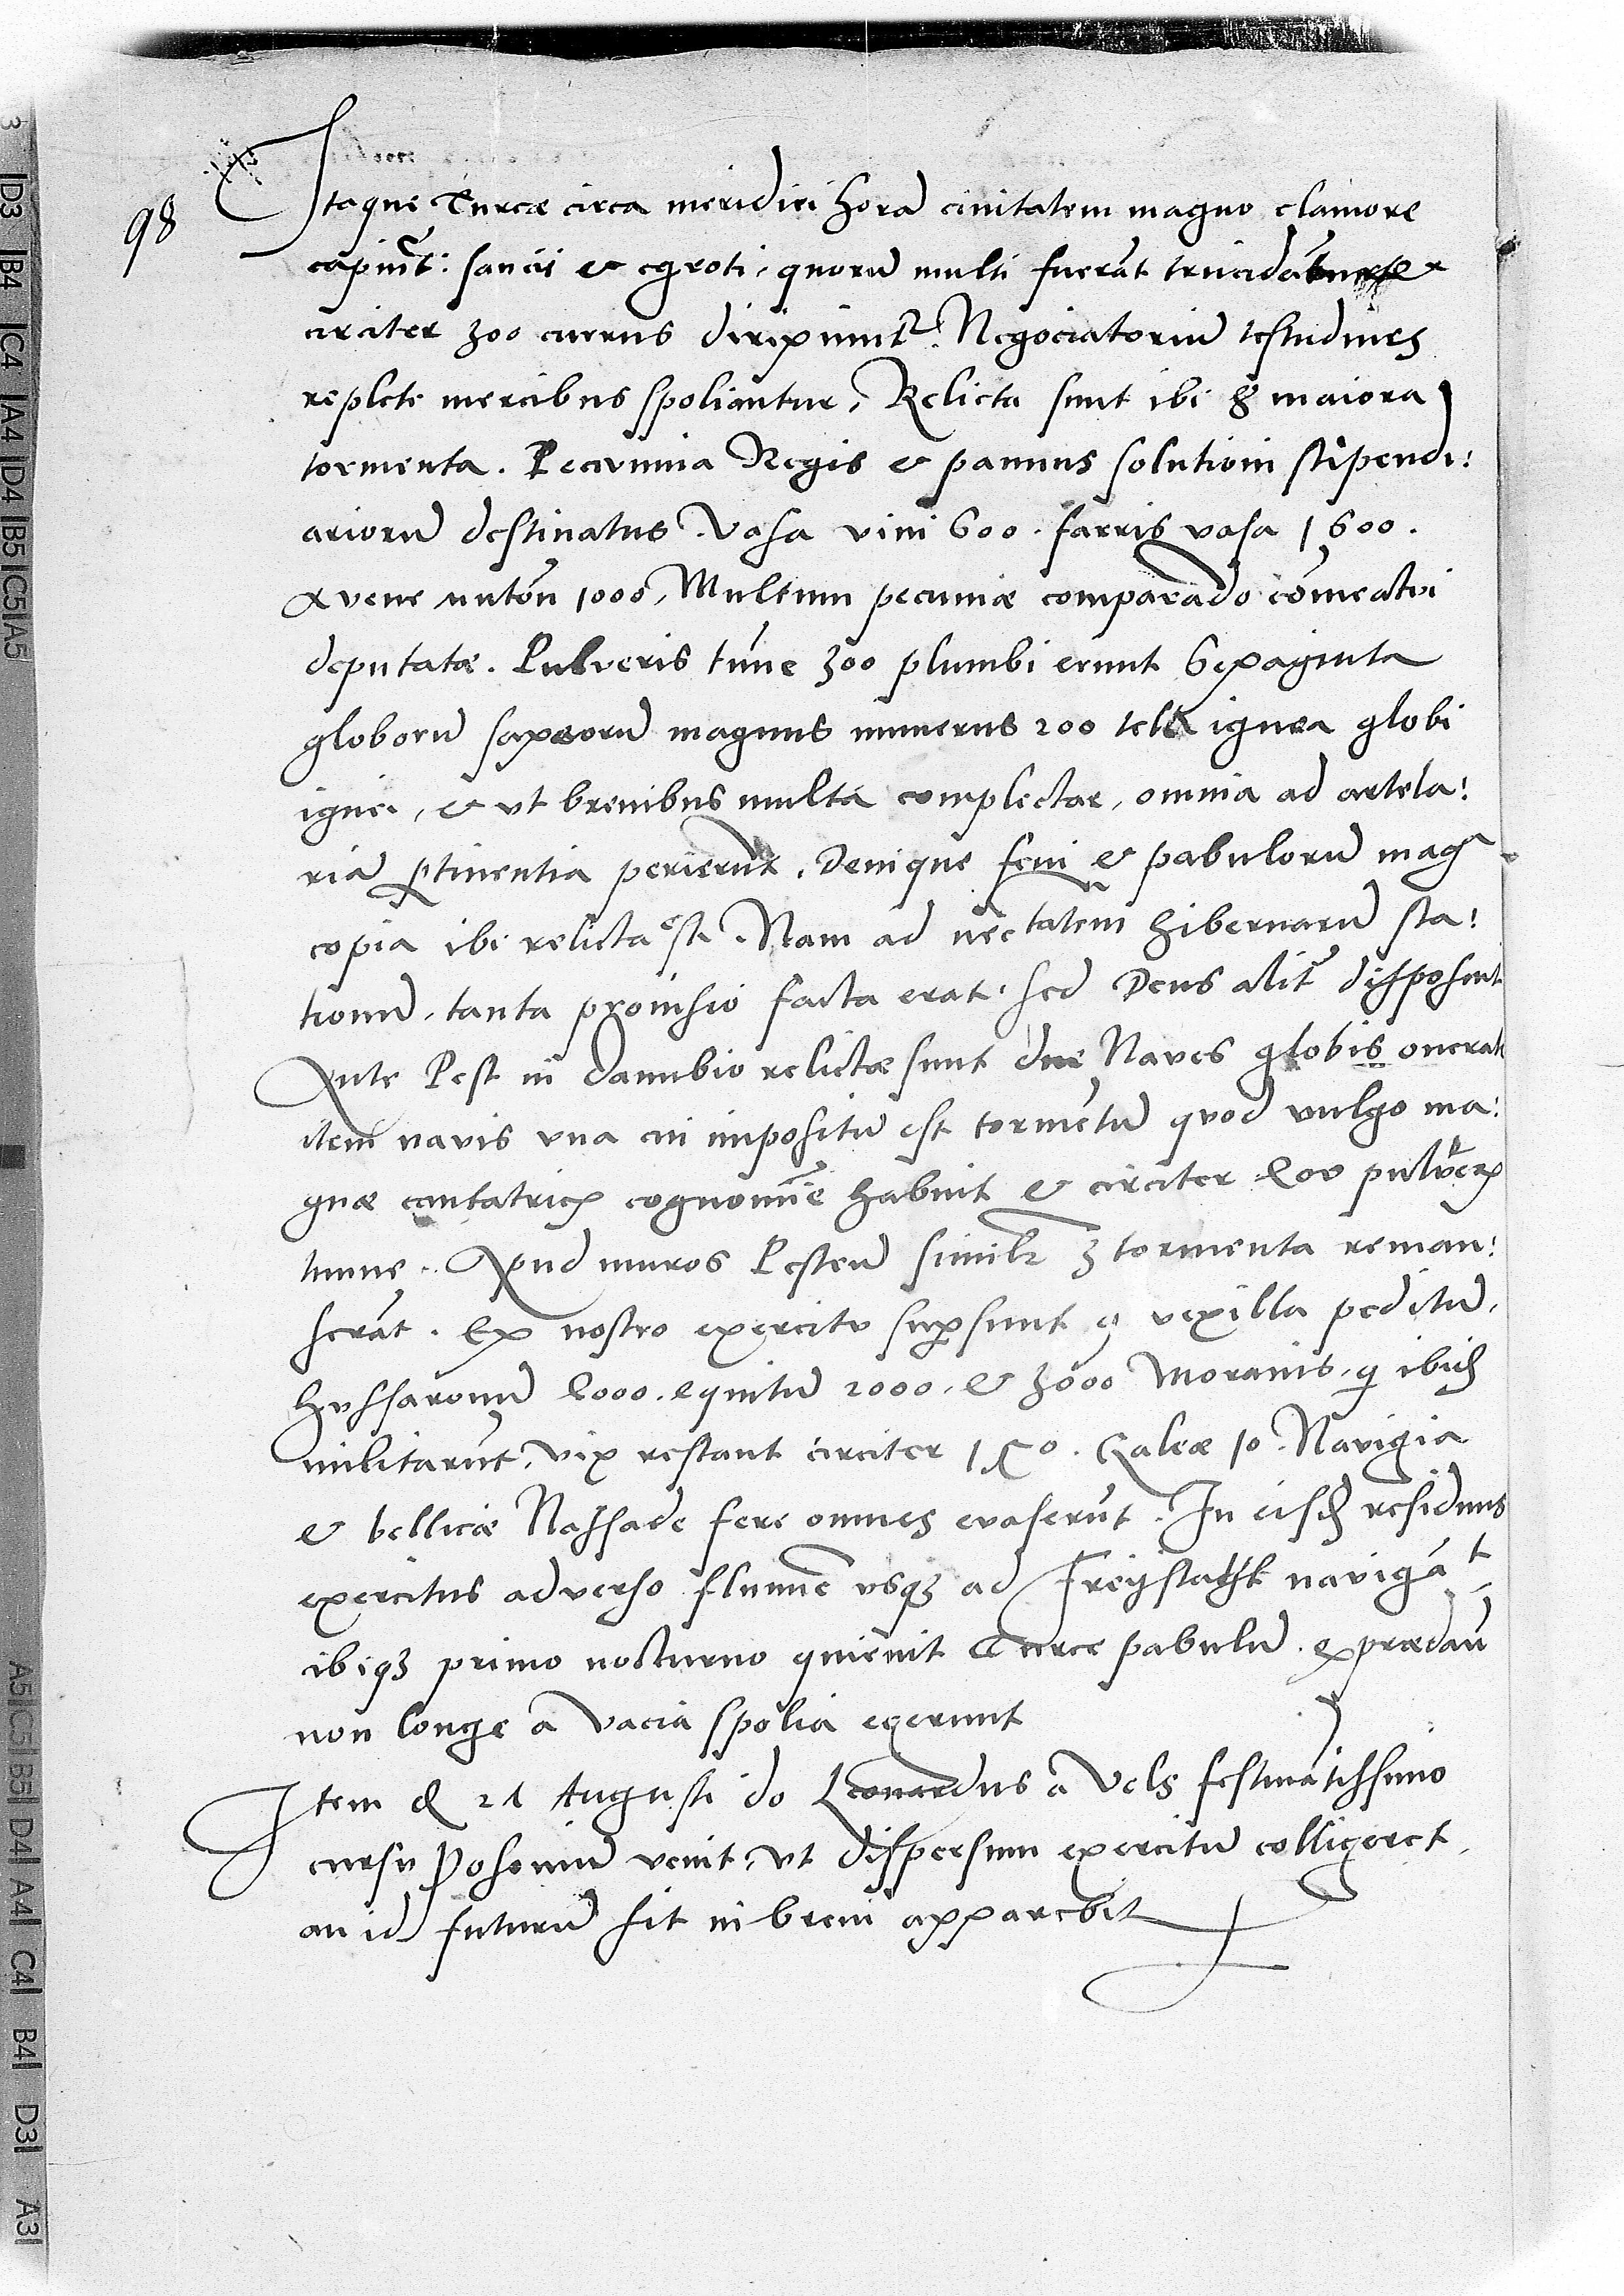 98
Itaque Turcæ circa meridiei horā civitatem magno clamore
capiūt: saucii & egroti, quorū multi fuerāt trucidātur &
circiter 300 currus diripiunt2. Negociatoriū testudines
replete mercibus spoliantur, Relicta sunt ibi 8 maiora
tormenta. Pecunnia Regis & pannus solutioni stipendi:
ariorū destinatus. Vasa vini 600. farris vasa 1600.
Avene mutōn 1000, Multum pecuniæ comparādo cōmeatui
deputatæ. Pulveris tūne 300 plumbi erunt Sexaginta
globorū saxeorū magnus numerus 200 tela ignea globi
ignei, & ut brevibus multa complectar, omnia ad artela:
riā ꝑtinentia perierūt. Denique feni & pabulorū magᵃ
copia ibi relicta est. Nam ad nēctatem hibernarū sta:
tionū, tanta provisio facta erat, sed Deus alit̄ disposuit
Ante Pest in Danubio relictæ sunt due Naves globis onerat
item navis una cui impositū est tormētū quod vulgo ma:
gnæ cantatricis cognomē habuit & circiter 400 pulveris
tunne. Apud muros Pesten̄ similr 3 tormenta reman:
serāt. Ex nostro exercitu suꝑsunt 9 vexilla peditū,
hussaronū 4000. equitū 2000. & 3000 Moravis, q ibid
militarūt, vix restant circiter 150. Galeæ 10. Navigia
& bellicæ Nassade fere omnes evaserūt. In eisd residuus
exercitus adverso flumē usqꝫ ad Freystatht navigāt
ibiqꝫ primo nocturno quievit Turce pabulū. & prædan̄
non longe a Vacia spolia egerunt
Item d 21 Augusti do Leonardus a Vels festinatissimo
cursu Posoniū venit, ut dispersum exercitū colligeret,
an id futurū sit in brevi apparebit